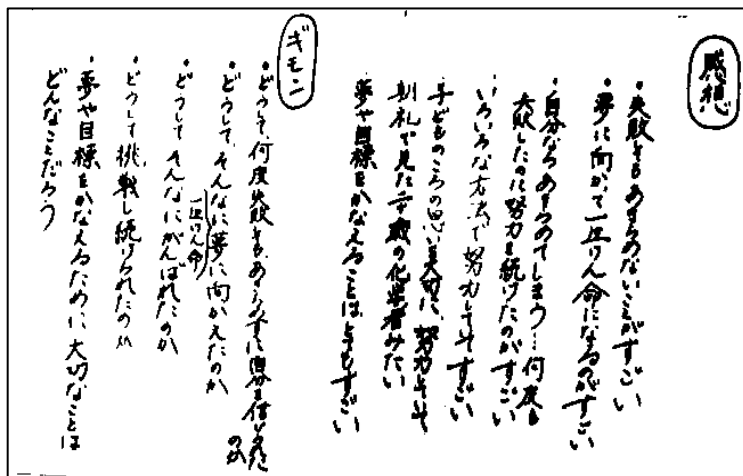 感想
・失敗してもあきらめないことがすごい
・夢に向かって一生けん命になるのがすごい
・自分ならあきらめてしまう…何度も
失敗したのに努力を続けたのがすごい
いろいろな方法で努力しててすごい
子どものころの思いを大切に、努力していて
朝礼で見た二千敗の化学者みたい
夢や目標をかなえることは、とてもすごい
ギモン
・どうして、何度失敗しても、あきらめずに自分を信じられたのか
・どうして、そんなに夢に向かえたのか
一生けん命
・どうしてそんなにがんばれたのか
・どうして挑戦し続けられたのか
・夢や目標をかなえるために大切なことは
どんなことだろう